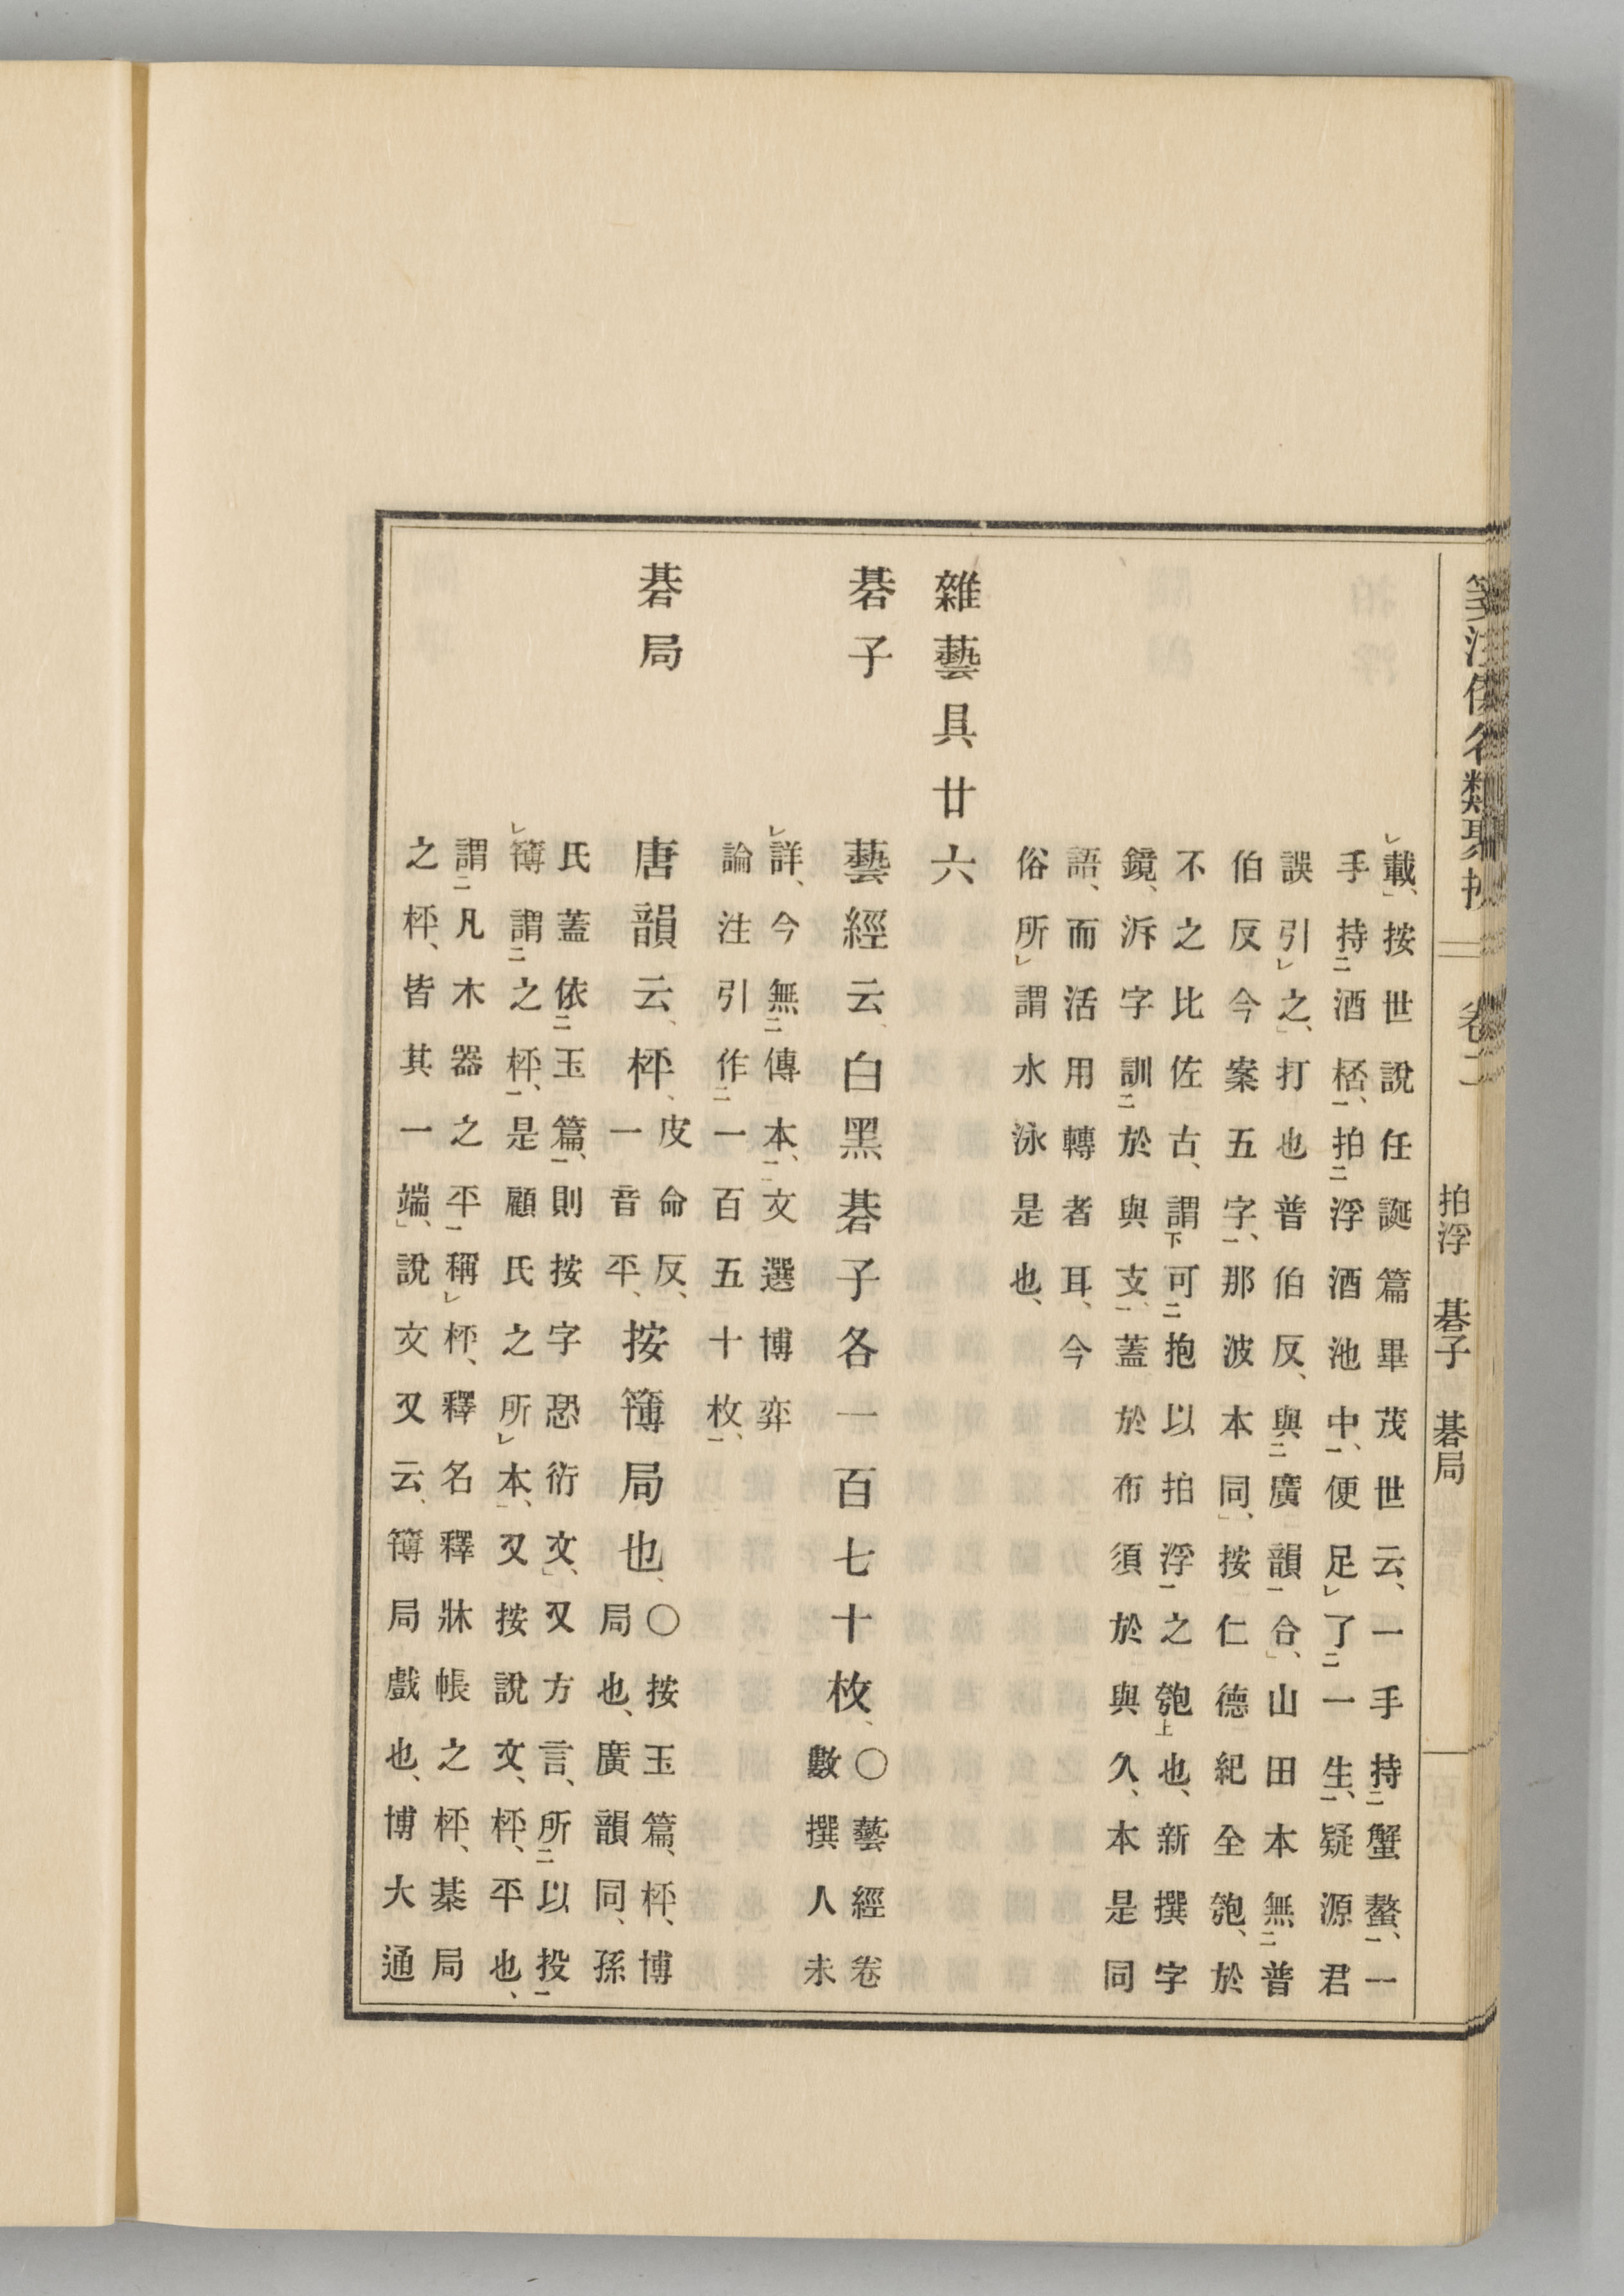 箋注倭名類聚抄 卷二 拍浮 碁子 碁局
載、按世說任誕篇畢茂世云、一手持蟹螯、一
手持酒桮、拍浮酒池中、便足了一生、疑源君
誤引之、打也普伯反、與廣韻合、山田本無普
伯反今案五字、那波本同、按仁德紀全匏、於
不之比佐古、謂可抱以拍浮之匏也、新撰字
鏡、泝字訓於與支、蓋於布須於與久、本是同
語、而活用轉者耳、今
俗所謂水泳是也、
雜藝具廿六
碁子 藝經云、白黑碁子各一百七十枚、
〇藝經卷
數撰人未
詳、今無傳本、文選博弈
論注引作一百五十枚、
碁局 唐韻云、枰、
皮命反、
一音平、
按簿局也、
〇按玉篇、枰、博
局也、廣韻同、孫
氏蓋依玉篇、則按字恐衍文、又方言、所以投
簿謂之枰、是顧氏之所本、又按說文、枰、平也、
謂凡木器之平稱枰、釋名釋牀帳之枰、棊局
之枰、皆其一端、說文又云、簿局戲也、博大通